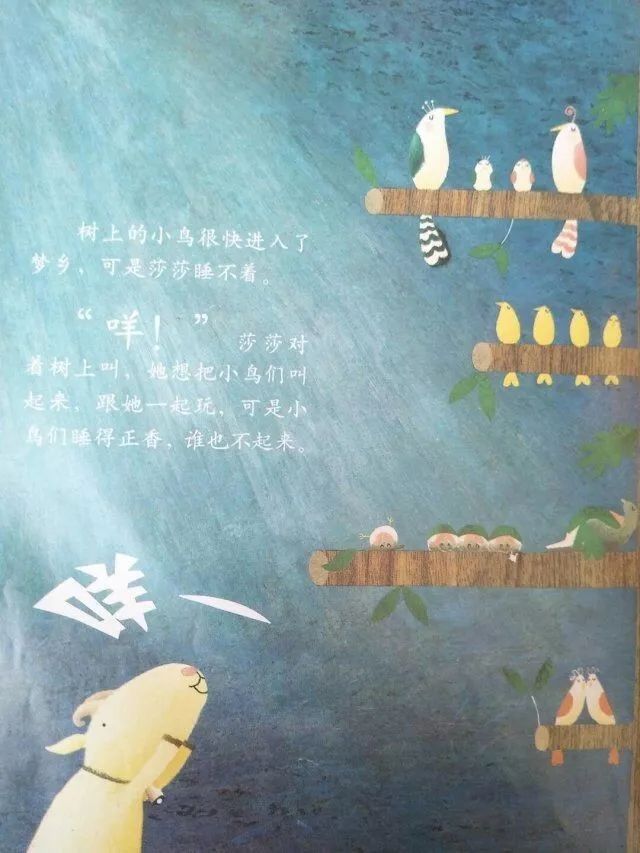 树上的小鸟很快进入了
梦乡，可是莎莎睡不着。
“咩！” 莎莎对
着树上叫，她想把小鸟们叫
起来，跟她一起玩，可是小
鸟们睡得正香，谁也不起来。
咩—